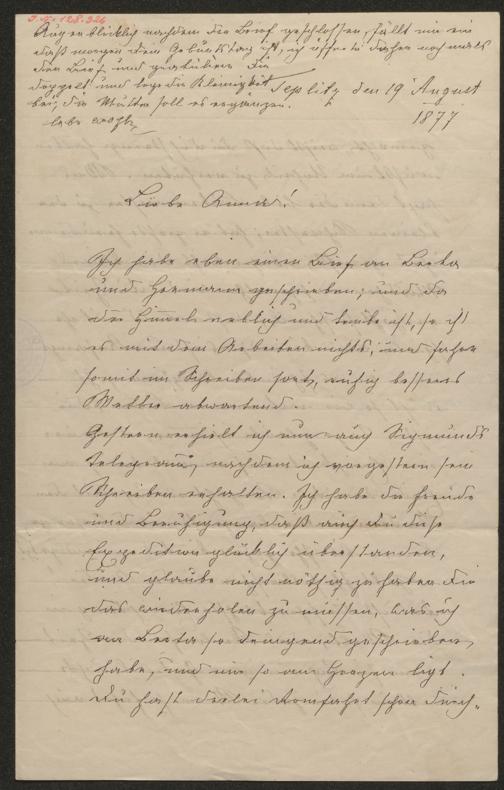 I. N. 128.326
Augenblicklich nachdem der Brief geschlossen, fällt mir ein
daß morgen dein Geburtstag ist, ich öffne daher nochmals
den Brief, und gratuliere Dir
doppelt und lege die Kleinigkeit
bei, die Mutter soll es ergänzen.
lebe wohl
Teplitz den 19 August
1877
Liebe Anna!
Ich habe eben einen Brief an Berta
und Hermann geschrieben; und da
der Himmel neblich und trübe ist, so ist
es mit dem Arbeiten nichts, und fahre
somit im Schreiben fort, ruhig besseres
Wetter abwartend.
Gestern erhielt ich nun auch Sigmunds
Telegram, nachdem ich vorgestern sein
Schreiben erhalten. Ich habe die Freude
und Beruhigung, daß auch Du diese
Expedition glücklich überstanden,
und glaube nicht nöthig zu haben Dir
das wiederholen zu müssen, was ich
an Berta so dringend geschrieben
habe, und mir so am Herzen ligt.
Du hast derlei schon durch-